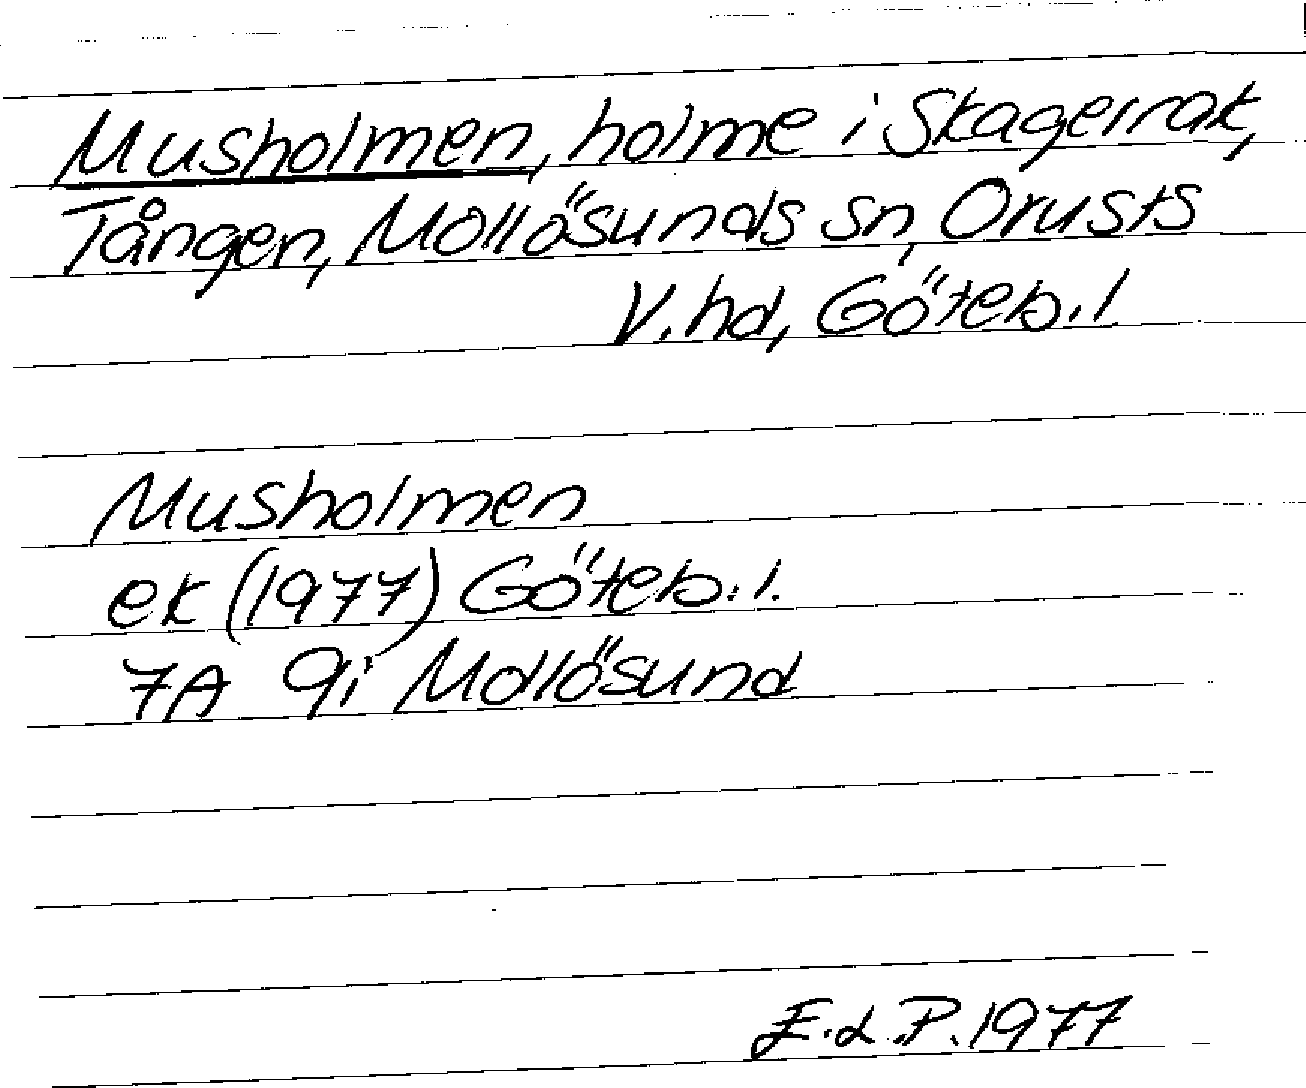 Musholmen, holme i Skagerrak,
Tången, Mollösunds sn, Orusts
V. hd, Göteb. l
Musholmen
ek (1977) Göteb. l.
7A 9i Mollösund
E.d.P. 1977